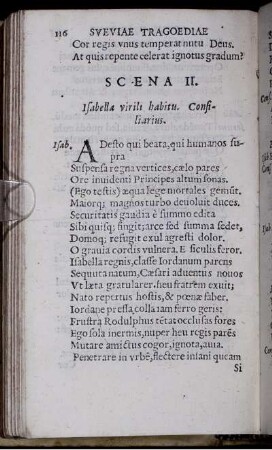 116 SVEVIAE TRAGOEDIAE
Cor regis vnus temperat nutu Deus.
At quis repente celerat ignotus gradum?
SCÆNA II.
Isabella virili habitu. Consi-
liarius.
Isab. ADesto qui beata, qui humanos su-
pra
Suspensa regna vertices, cælo pares
Ore invidenti Principes altum sonas.
(Ego testis) æqua lege mortales gemūt.
Maiorq; magnos turbo devoluit duces.
Securitatis gaudia è summo edita
Sibi quisq; fingit; arce sed summa sedet,
Domoq; refugit exul agresti dolor.
O gravia cordis vulnera. E siculis feror.
Isabella regnis, classe Iordanum parens
Sequuta natum, Cæsari aduentus nouos
Vt læta gratularer. heu fratrem exuit;
Nato repertus hostis, & pœnæ faber.
Iordane pressa, colla iam ferro geris:
Frustrà Rodulphus tētat occlusas fores
Ego sola inermis, nuper heu regis parēs
Mutare amictus cogor, ignota, auia.
Penetrare in vrbē, flectere insani queam
Si